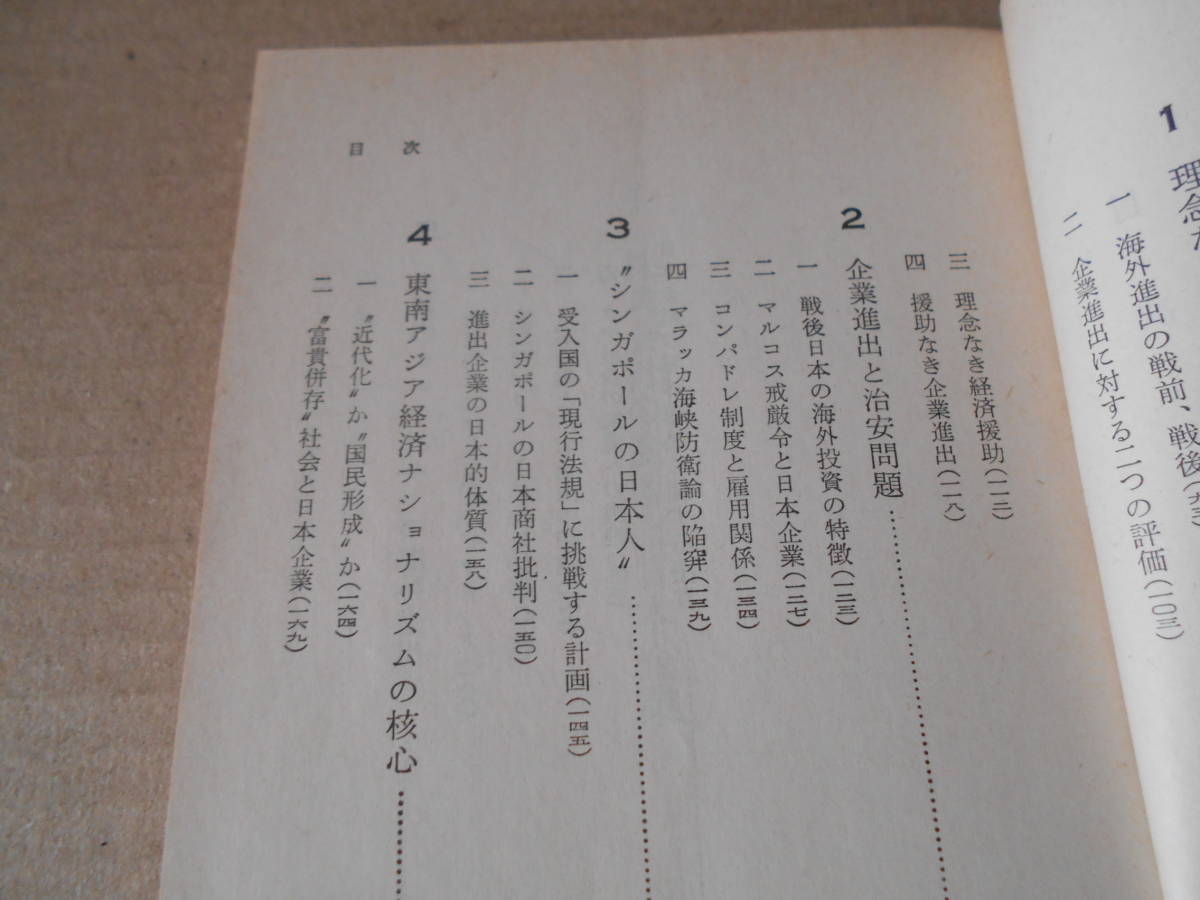 1 理念な
一 海外進出の戦前、戦後(九三)
二 企業進出に対する二つの評価(一〇三)
三 理念なき経済援助(一一二)
四 援助なき企業進出(一一八)
2 企業進出と治安問題
一 戦後日本の海外投資の特徴(一二三)
二 マルコス戒厳令と日本企業(一二七)
三 コンパドレ制度と雇用関係(一三四)
四 マラッカ海峡防衛論の陥穽(一三九)
3 〝シンガポールの日本人〟
一 受入国の「現行法規」に挑戦する計画(一四五)
二 シンガポールの日本商社批判(一五〇)
三 進出企業の日本的体質(一五八)
4 東南アジア経済ナショナリズムの核心
一 〝近代化〟か〝国民形成〟か(一六四)
二 〝富貴併存〟社会と日本企業(一六九)
目次